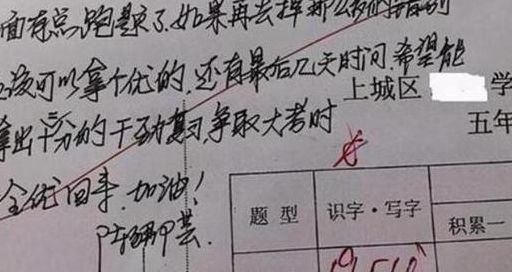 面有点跑题了.如果再去掉那么多的错别
应该可以拿个优的.还有最后几天时间.希望能
拿出十分的干劲复习争取大考时
全优回来.加油!
上城区 学
五年
优
题 型 识字·写字 积累一